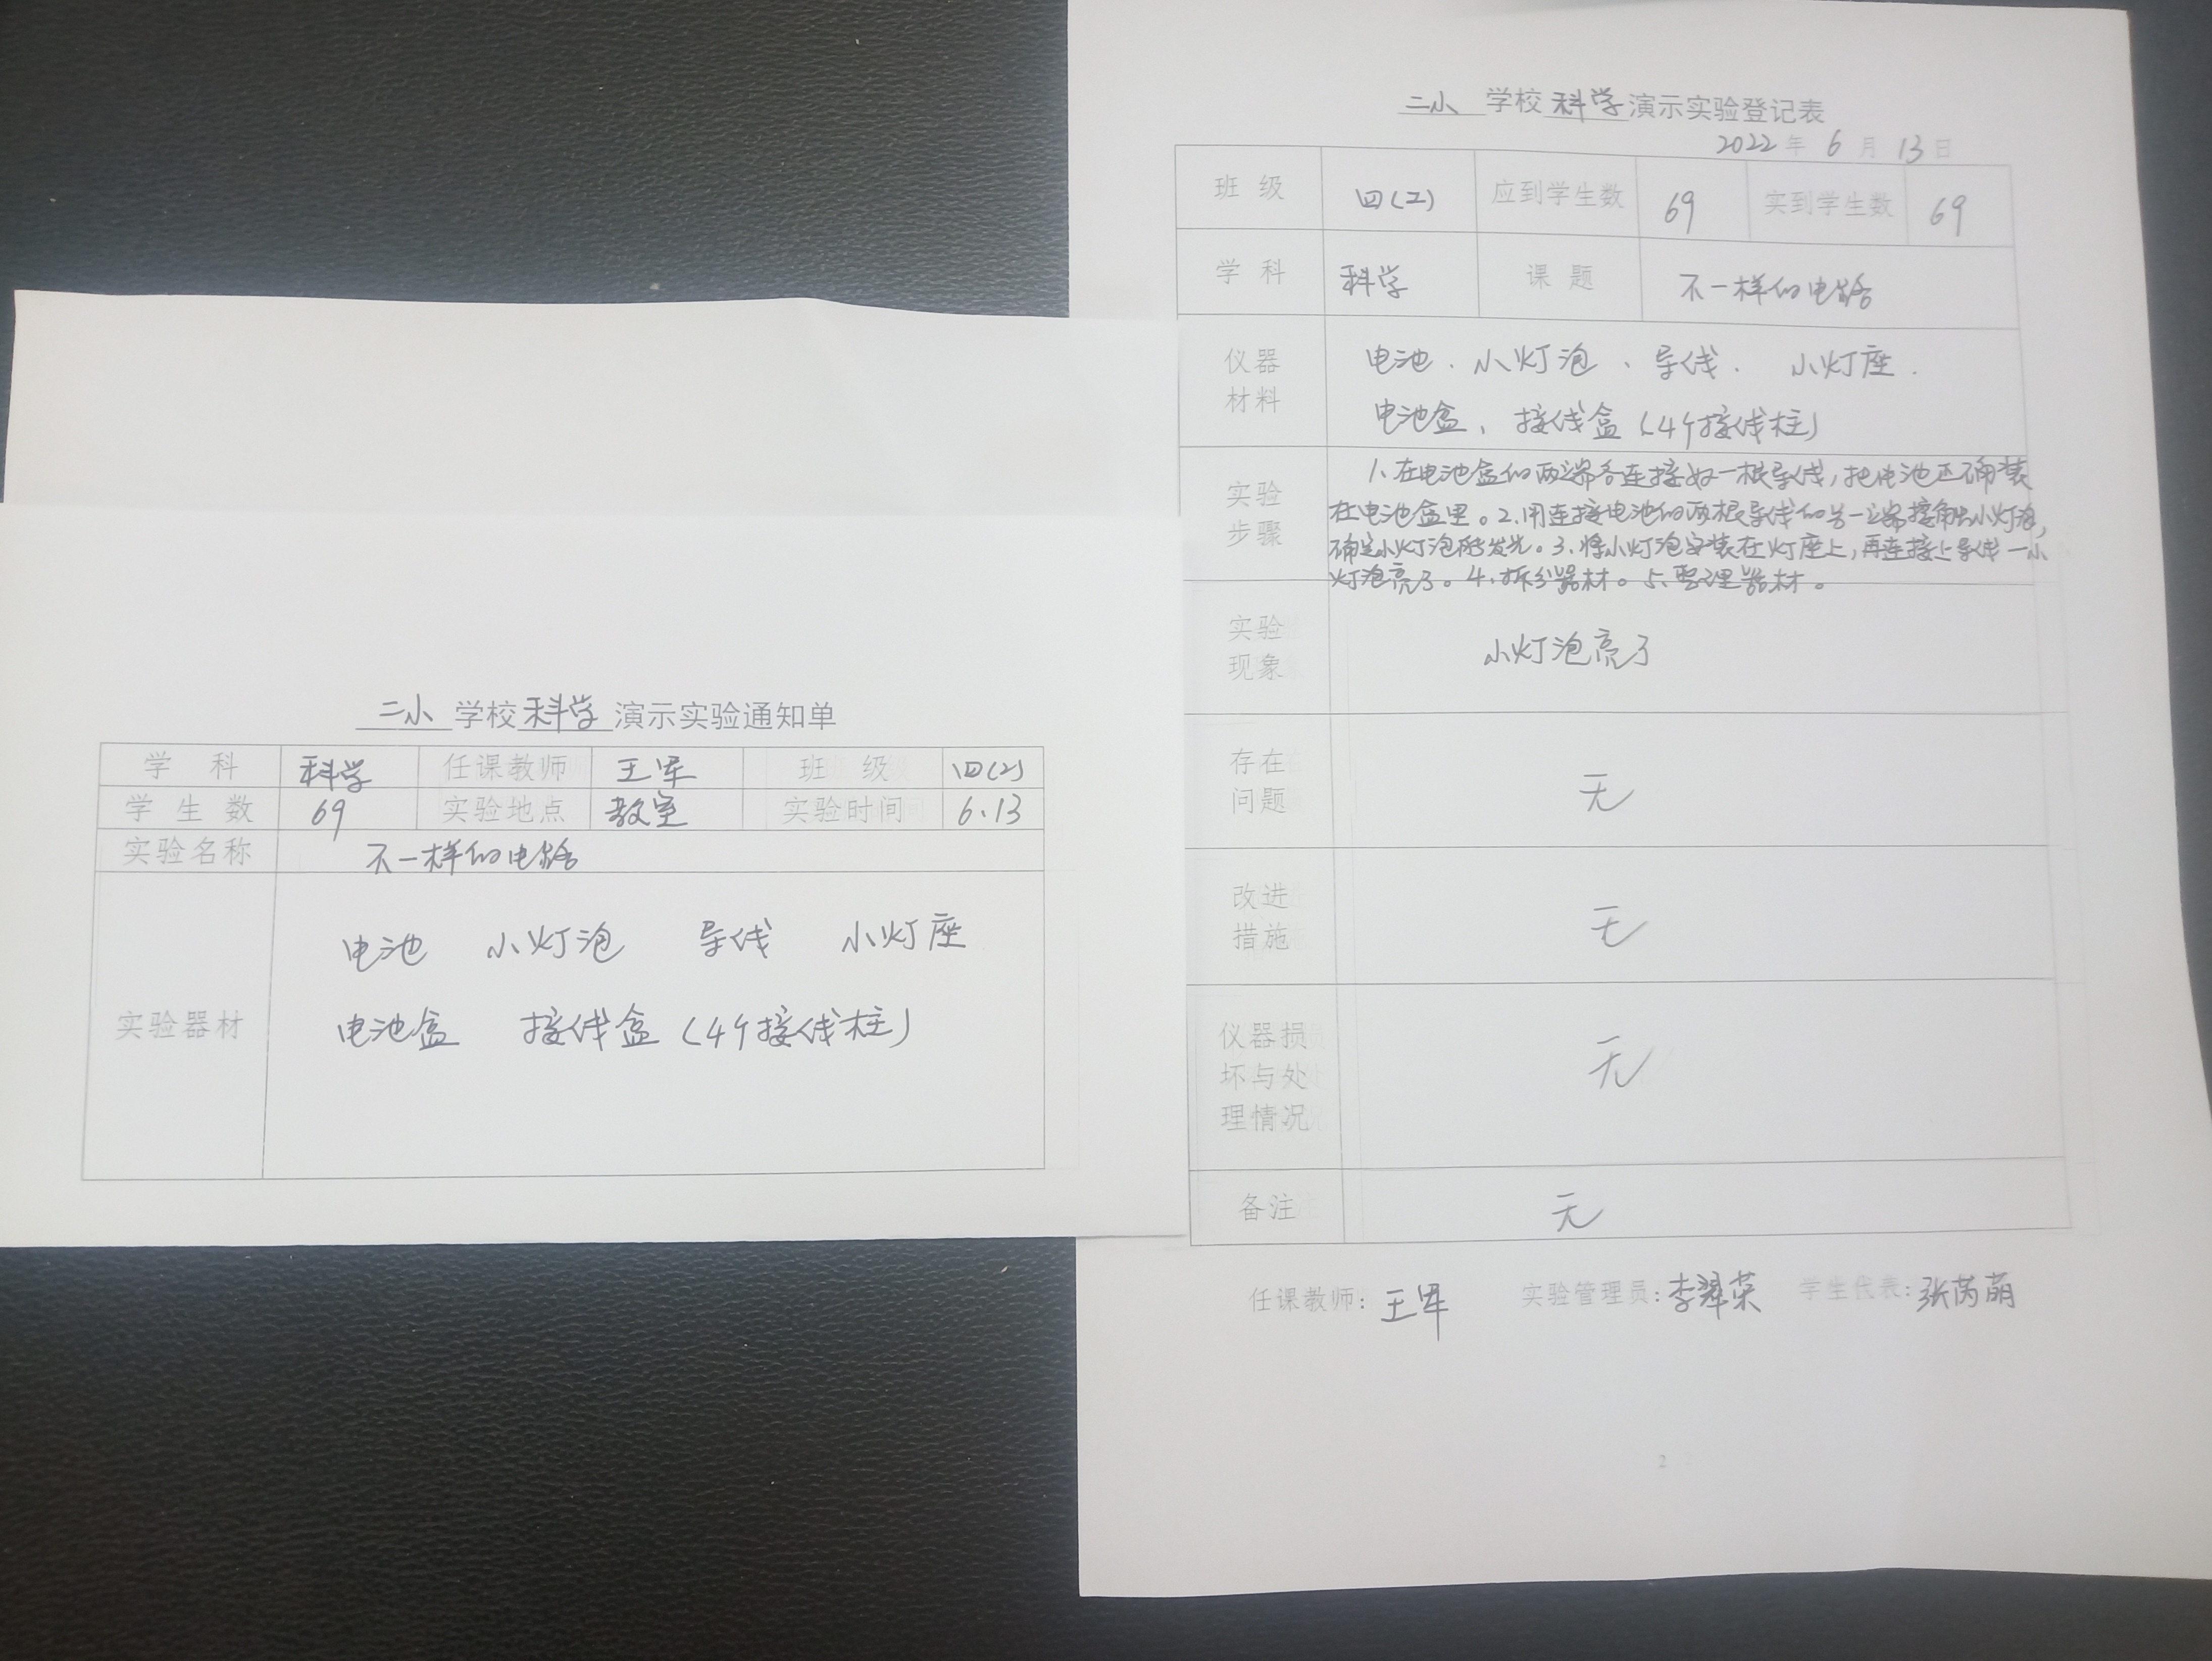 二小 学校 科学 演示实验通知单
学 科 科学 任课教师 王军 班 级 四(2)
学 生 数 69 实验地点 教室 实验时间 6.13
实验名称 不一样的电路
电池 小灯泡 导线 小灯座
实验器材 电池盒 接线盒(4个接线柱)
二小 学校 科学 演示实验登记表
2022 年 6 月 13 日
班 级 四(2) 应到学生数 69 实到学生数 69
学 科 科学 课 题 不一样的电路
仪器 电池、小灯泡、导线、 小灯座、
材料 电池盒、接线盒(4个接线柱)
实验 1、在电池盒的两端各连接好一根导线,把电池正确装
步骤 在电池盒里。2、用连接电池的两根导线的另一端接触小灯泡,
确定小灯泡能发光。3、将小灯泡安装在灯座上,再连接上导线一小
灯泡亮了。4、拆分器材。5、整理器材。
实验
现象 小灯泡亮了
存在
问题 无
改进
措施 无
仪器损
坏与处 无
理情况
备注 无
任课教师: 王军 实验管理员: 李翠荣 学生代表: 张芮萌
2